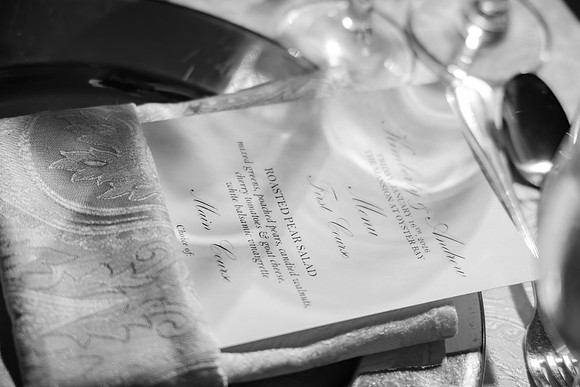 Kimberly & Andrew
JANUARY 16th, 2016
THE MANSION AT OYSTER BAY
Menu
First Course
ROASTED PEAR SALAD
mixed greens, poached pears, candied walnuts,
cherry tomatoes & goat cheese,
white balsamic vinaigrette
Main Course
Choice of: